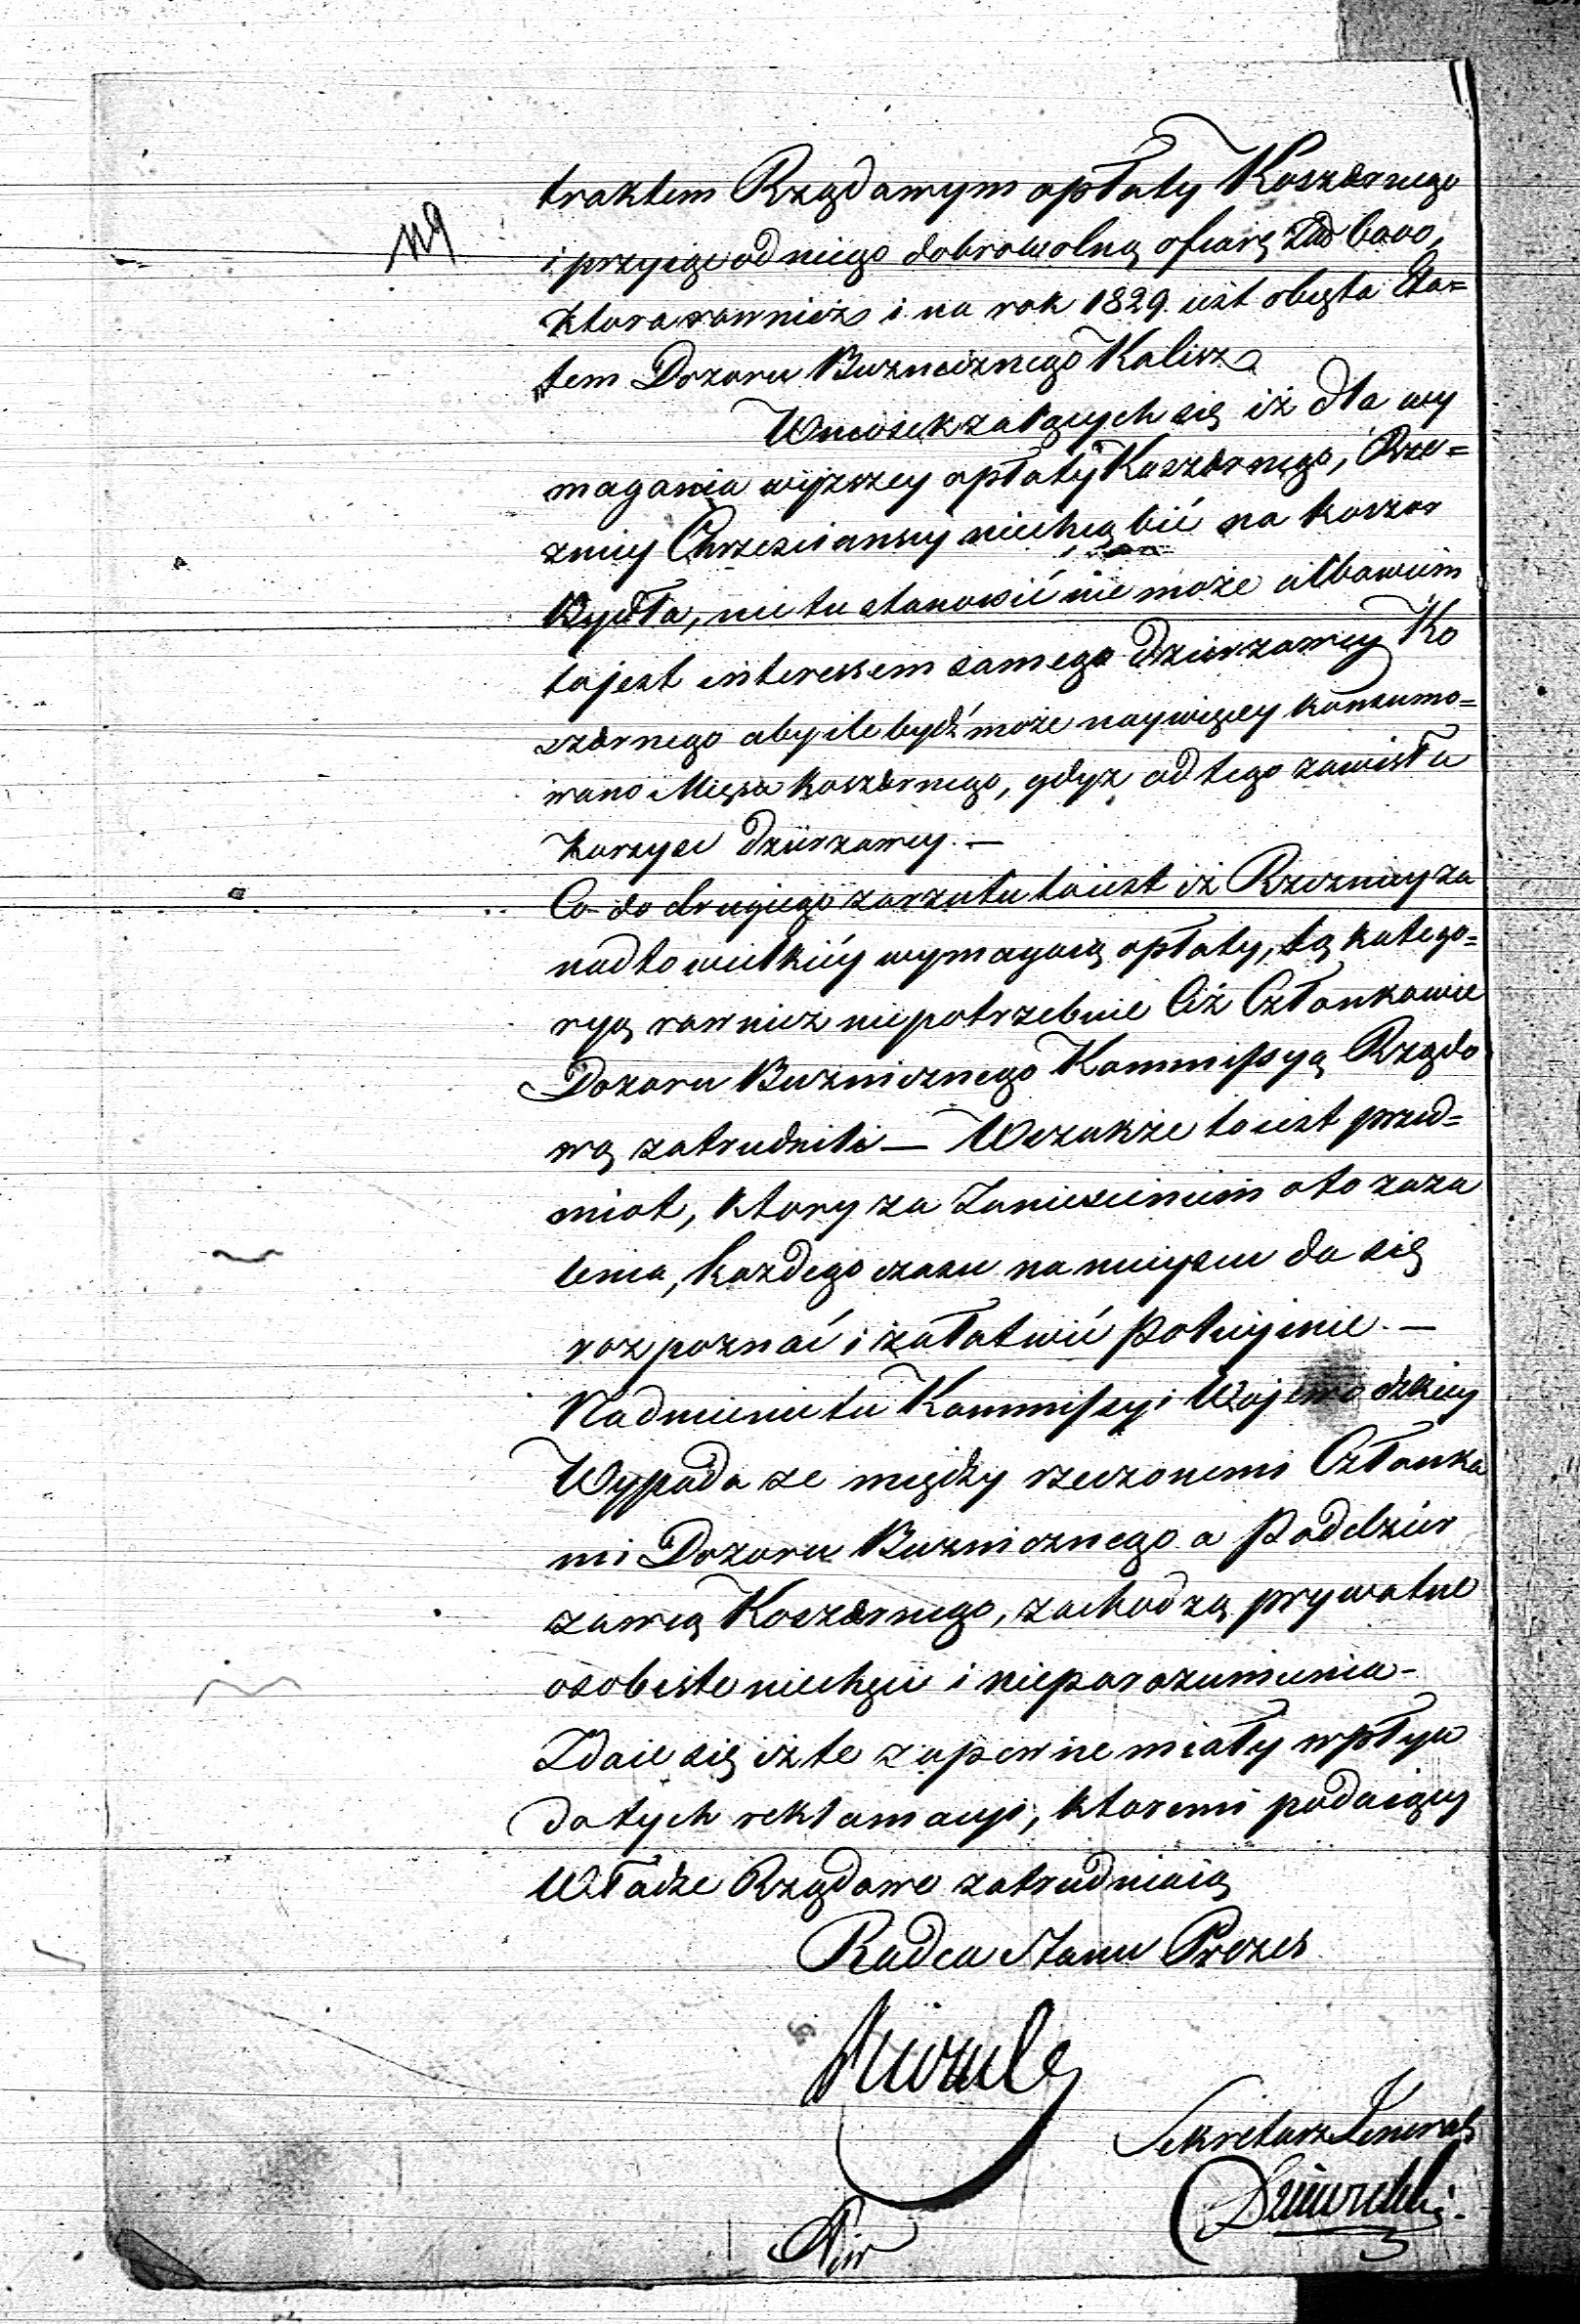 11
traktem Rządowym opłaty Koszernego
i przyięć od niego dobrowolną ofiarę Złł 6000,
ktora rownież i na rok 1829. iest obięta Eta=
tem Dozoru Buzniczego Kalisz.
Wniosek żalących się iż dla wy
magania wyższey opłaty Koszernego, Rze=
znicy Chrzesciansy niechcą bić na koszer
Bydła, nie tu stanowić nie może albowiem
to jest interessem samego Dzierzawcy Ko
szernego aby ile bydź może naywięcy konsumo=
wano Mięsa koszernego, gdyz od tego zawisła
korzysc dzierzawcy. —
Co do drugiego zarzutu to iest iż Rzeznicy za
nadto wielkiéy wymagaią opłaty, tą katego=
ryą rownież niepotrzebnie Ciż Członkowie
Dozoru Buznicznego Kommissyą Rządo
wą zatrudnili — Wszakże to iest przed=
miot, ktory za Zaniesieniem oto zaża
lenia, każdego czasu na mieyscu da się
rozpoznać i załatwić policyinie. —
Nadmienić tu Kommissyi Wojewodzkiey
Wypada ze między rzeczonemi Członka
mi Dozoru Buznicznego a Poddzier
zawcą Koszernego, zachodzą prywatne
osobiste niechęci i nieporozumienia -
Zdaie się iż te zapewne miały wpływ
do tych reklamacyi, ktoremi podaiący
Władze Rządowe zatrudniaią
Radca Stanu Prezes
Sekretarz Jeneral.